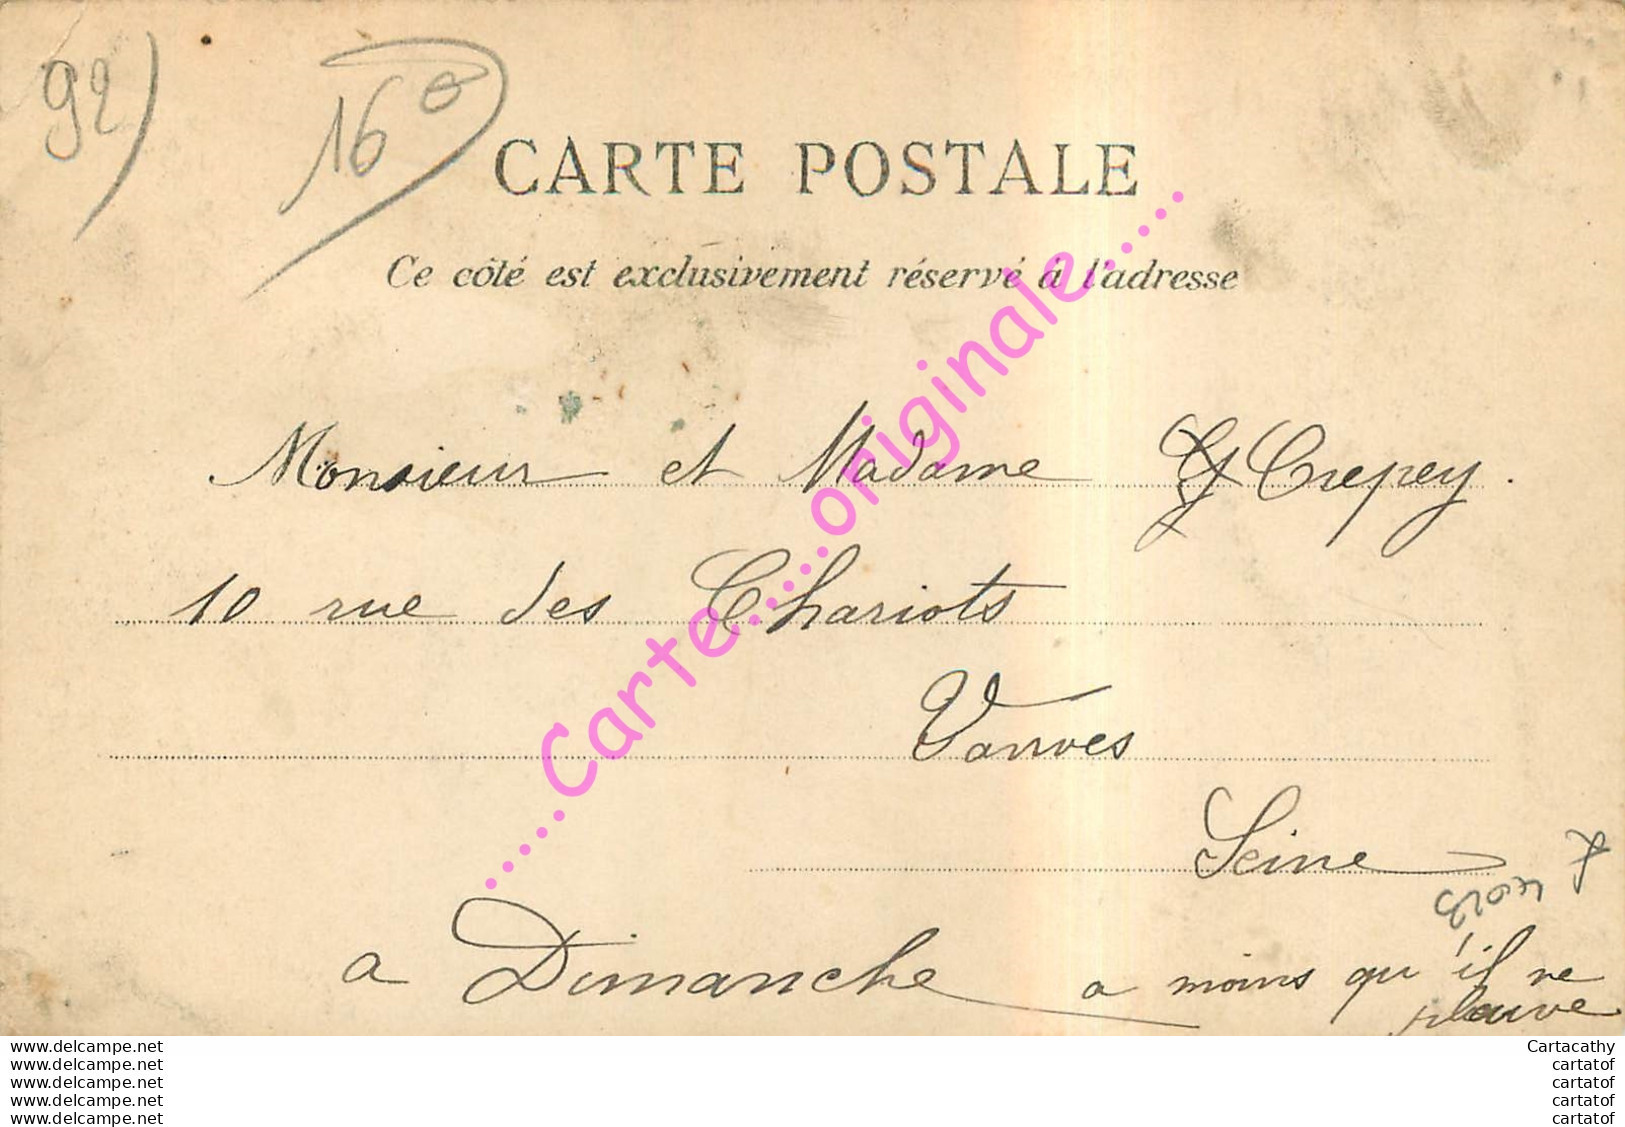 92)
16
CARTE POSTALE
Ce côté est exclusivement réservé à l'adresse
Monsieur et Madame G Crepey.
10 rue des Chariots
Vanves
Seine
a Dimanche a moins qu'il ne
pleuve
.....Carte.....originale......
www.delcampe.net
www.delcampe.net
www.delcampe.net
www.delcampe.net
www.delcampe.net
Cartacathy
cartatof
cartatof
cartatof
cartatof